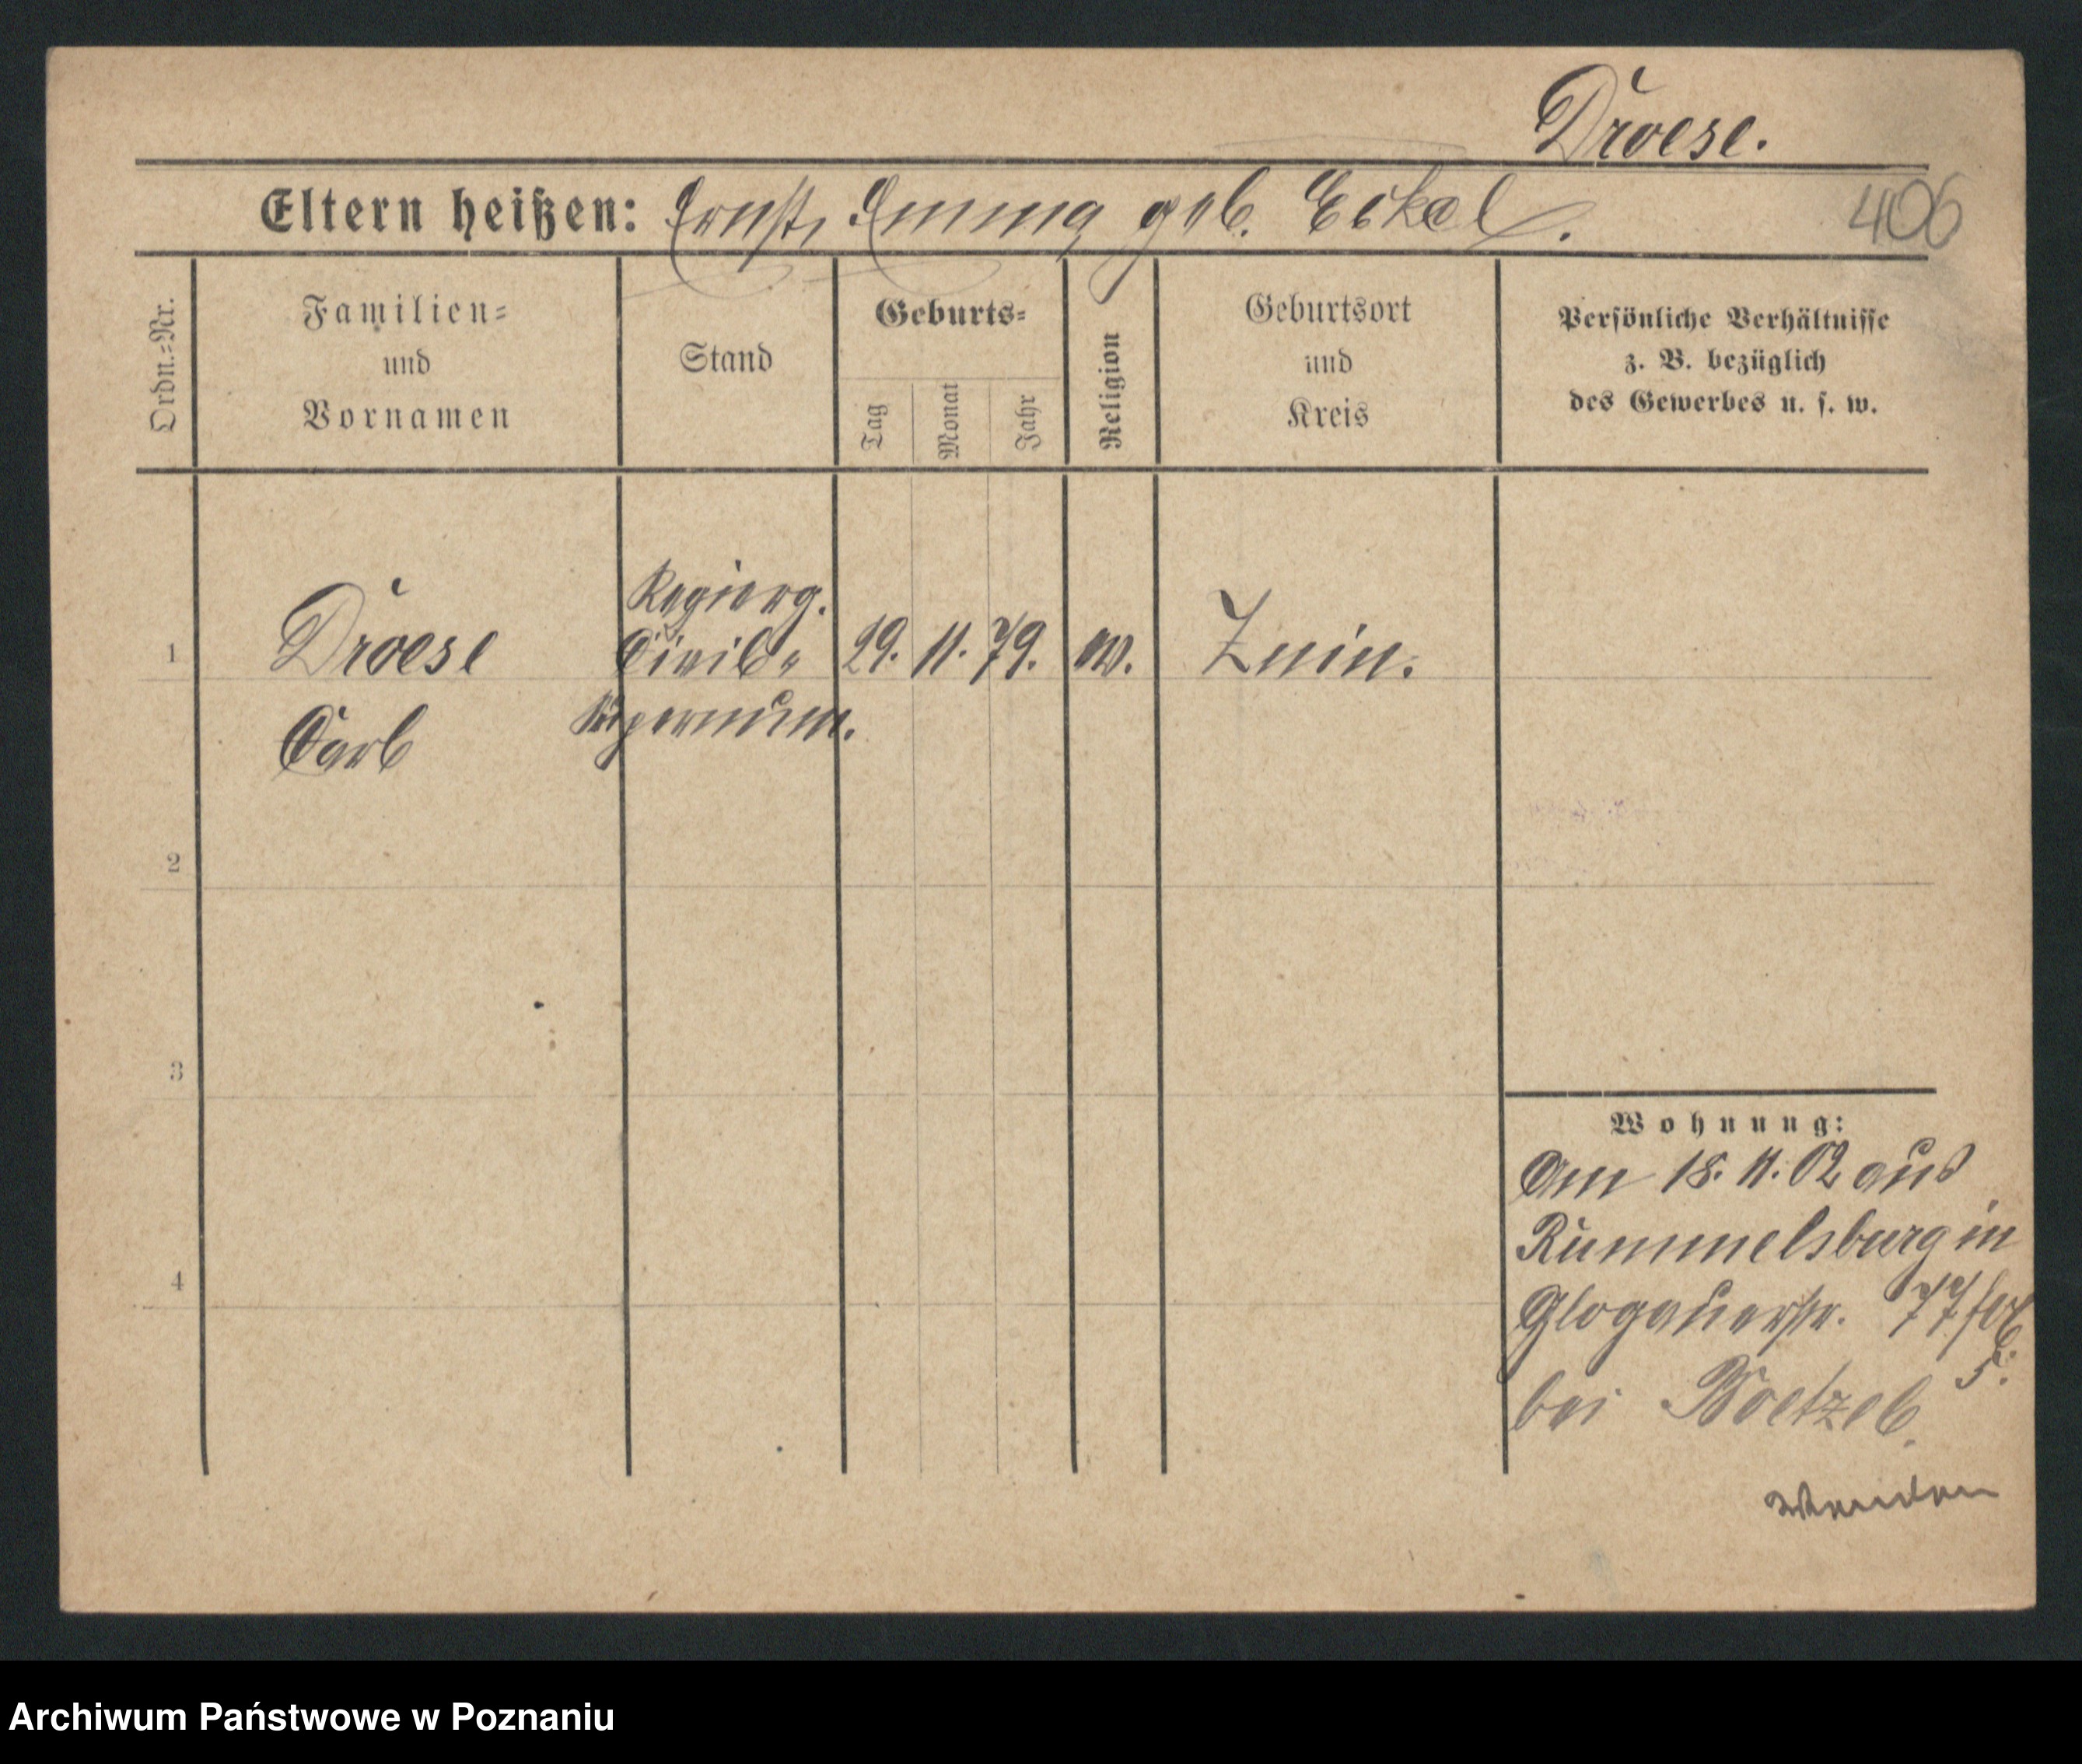 Droese.
Eltern heißen: Ernst, Emma geb. Eckel.
406
Ordn.=Nr.
Familien=
und
Vornamen
Stand
Geburts=
Tag
Monat
Jahr
Religion
Geburtsort
und
Kreis
Persönliche Verhältnisse
z. B. bezüglich
des Gewerbes u. s. w.
1
Droese
Carl
Regierg.
Civil=
Supernum.
29. 11. 79.
ev.
Znin.
2
3
4
Wohnung:
Am 18. 11. 02 aus
Rummelsburg in
Glogauerstr. 77
5.
bei
Wenden
Archiwum Państwowe w Poznaniu